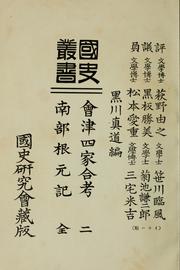 評議員
文學博士 萩野由之
文學博士 黑板勝美
文學博士 松本愛重
文學士 笹川臨風
文學士 菊池謙二郎
文學博士 三宅米吉
黑川眞道編
國史叢書
會津四家合考 二
南部根元記 全
國史硏究會藏版